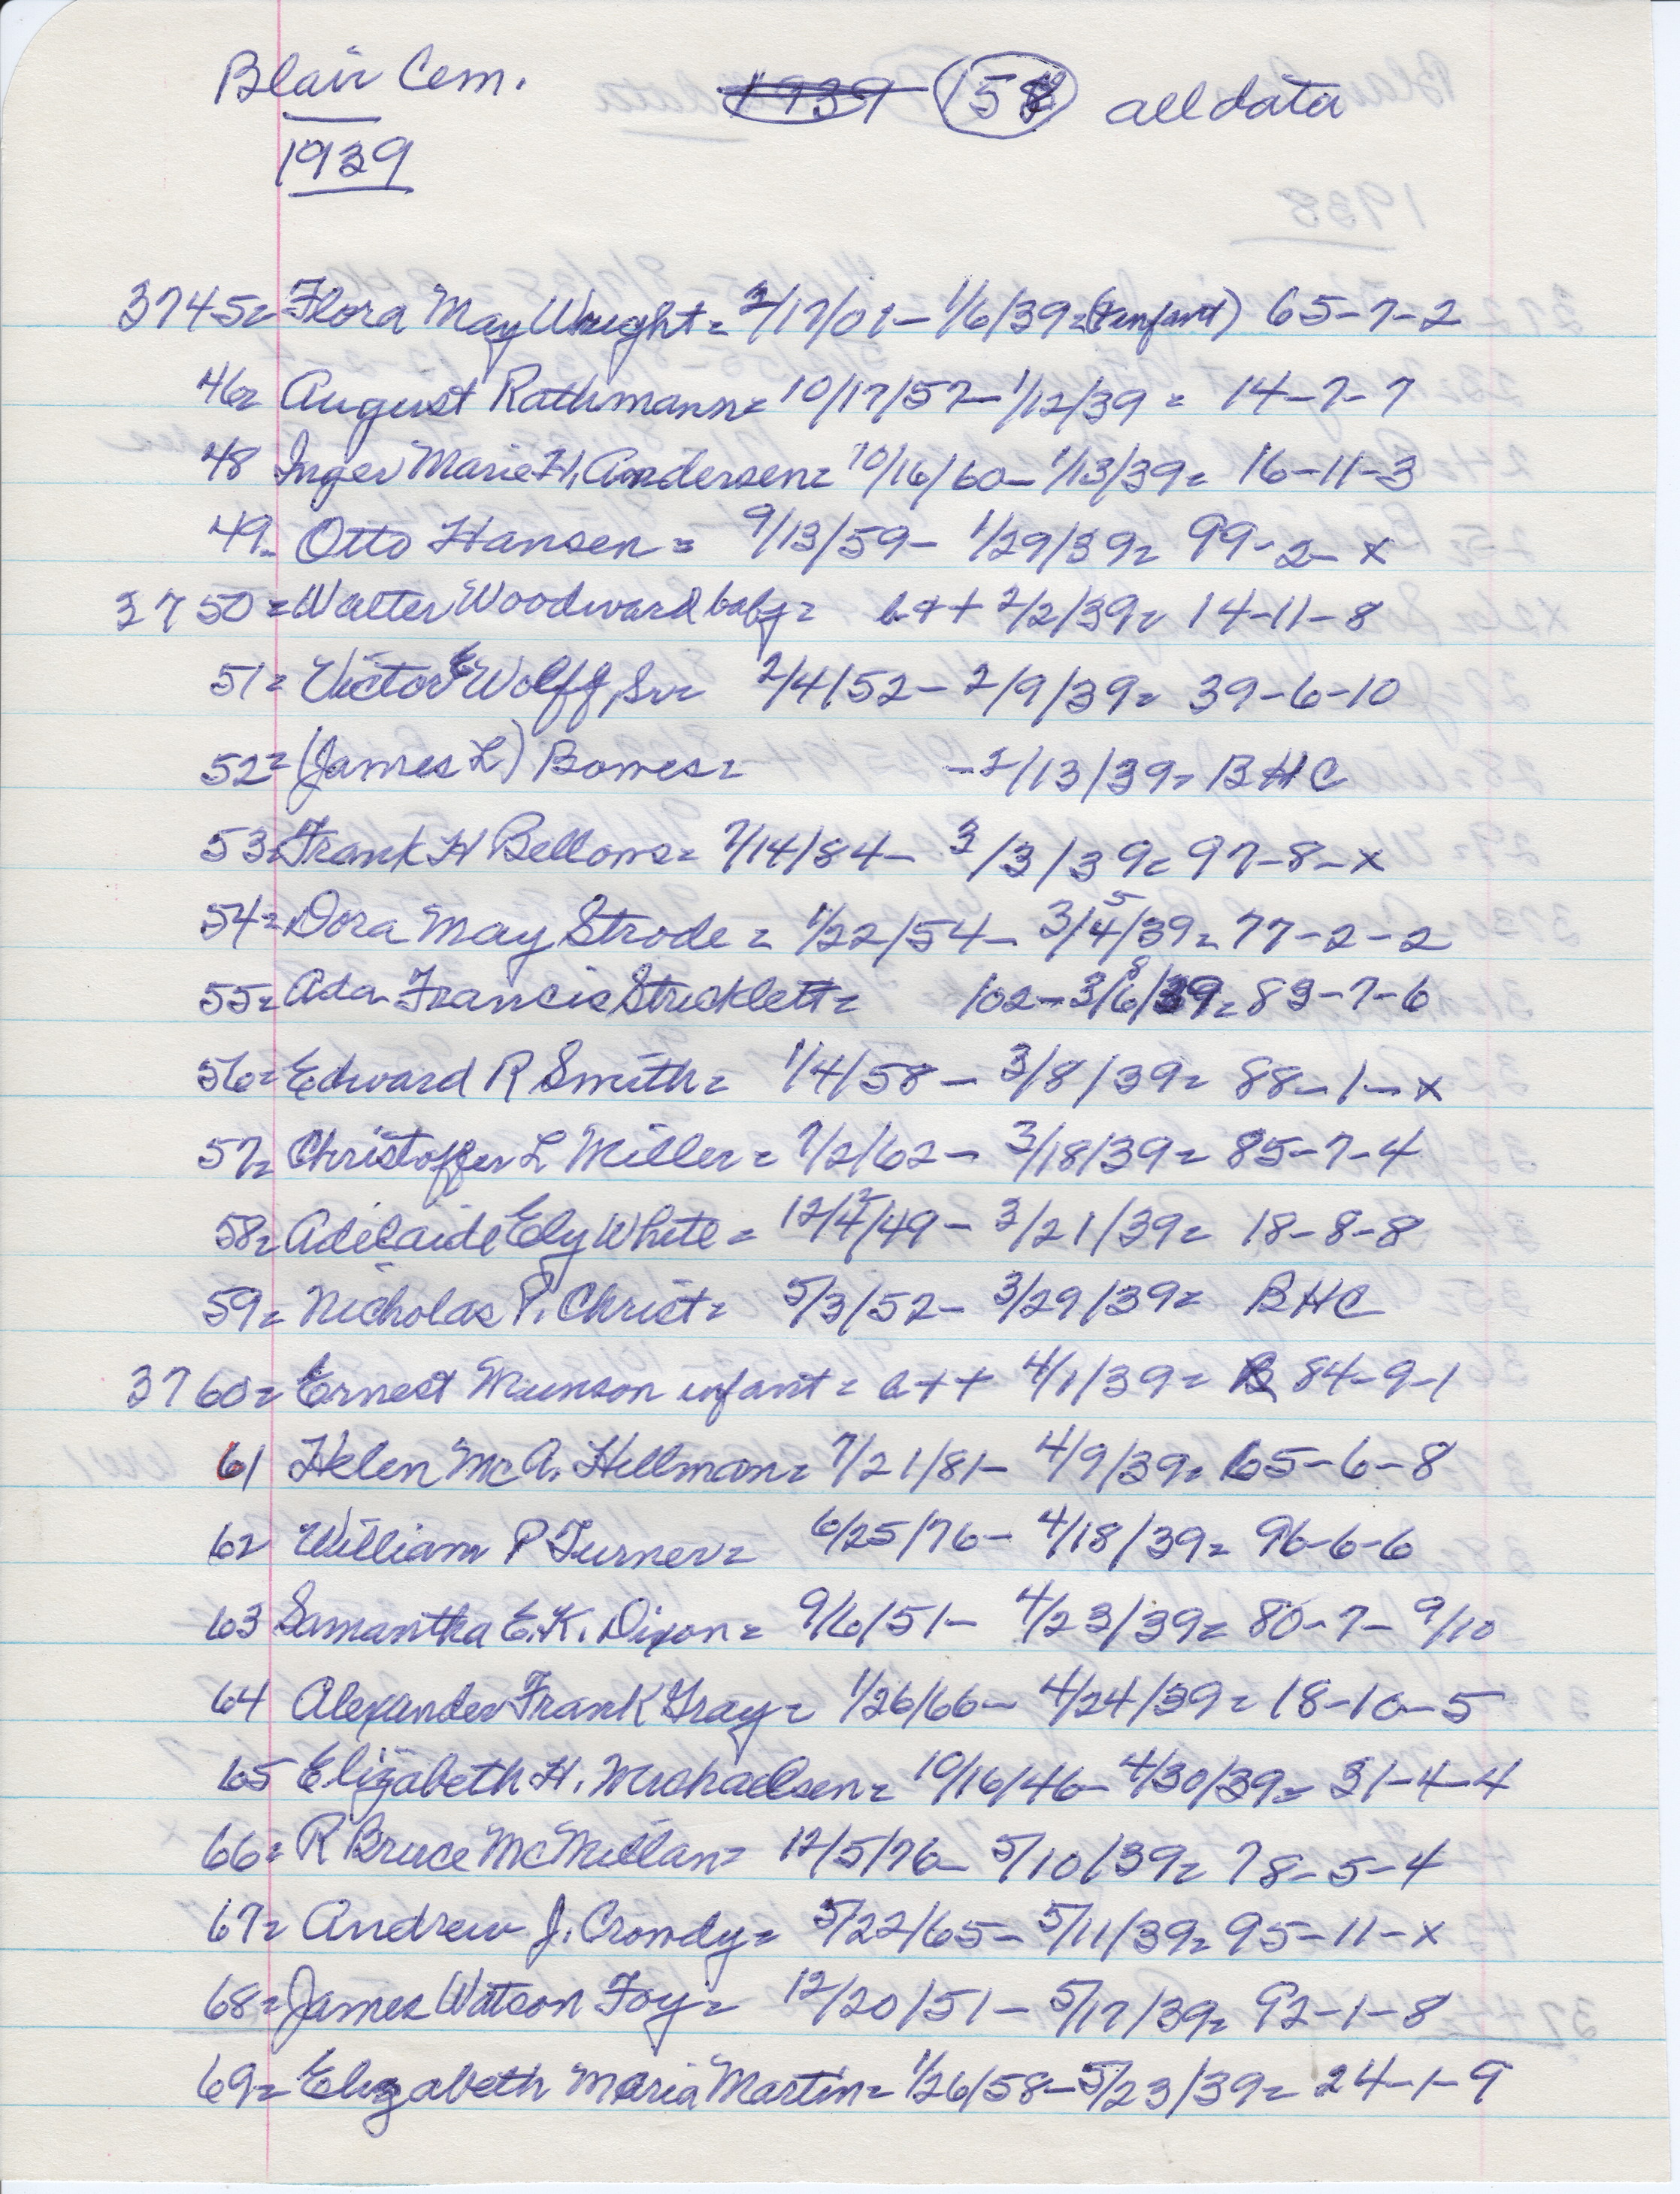 Blair Cem. 1939 158 all data
1939
3745= Flora May Wright = 2/17/01 - 1/6/39 = (+ infant) 65-7-2
46= August Rathmann = 10/17/57 - 1/12/39 = 14-7-7
48 Inger Marie H. Andersen = 10/16/60 - 1/13/39 = 16-11-3
49- Otto Hansen = 9/13/59 - 1/29/39 = 99-2-x
3750 = Walter Woodward baby = b++ 2/2/39 = 14-11-8
51= Victor E Wolff, Sr = 2/4/52 - 2/9/39 = 39-6-10
52= (James L) Bowes = -2/13/39 = BHC
53= Frank H Bellows = 7/14/84 - 3/3/39 = 97-8-x
54= Dora May Strode = 1/22/54 - 3/4/39 = 77-2-2
55= Ada Francis Stricklett = /02 - 3/6/39 = 83-7-6
56= Edward R Smith = 1/4/58 - 3/8/39 = 88-1-x
57= Christoffer L Miller = 7/2/62 - 3/18/39 = 85-7-4
58= Adelaide Ely White = 12/4/49 - 3/21/39 = 18-8-8
59= Nicholas P. Christ = 5/3/52 - 3/29/39 = BHC
3760= Ernest Munson infant = b++ 4/1/39 = 84-9-1
61 Helen McA. Hillman = 7/21/81 - 4/9/39 = 65-6-8
62 William P Turner = 6/25/76 - 4/18/39 = 96-6-6
63 Samantha E.K. Dixon = 9/6/51 - 4/23/39 = 80-7-9/10
64 Alexander Frank Gray = 1/26/66 - 4/24/39 = 18-10-5
65 Elizabeth H. Michaelsen = 10/16/46 - 4/30/39 = 31-4-4
66= R Bruce McMillan = 12/5/76 - 5/10/39 = 78-5-4
67= Andrew J. Crowdy = 5/22/65 - 5/11/39 = 95-11-x
68= James Watson Foy = 12/20/51 - 5/17/39 = 92-1-8
69= Elizabeth Maria Martin = 1/26/58 - 5/23/39 = 24-1-9